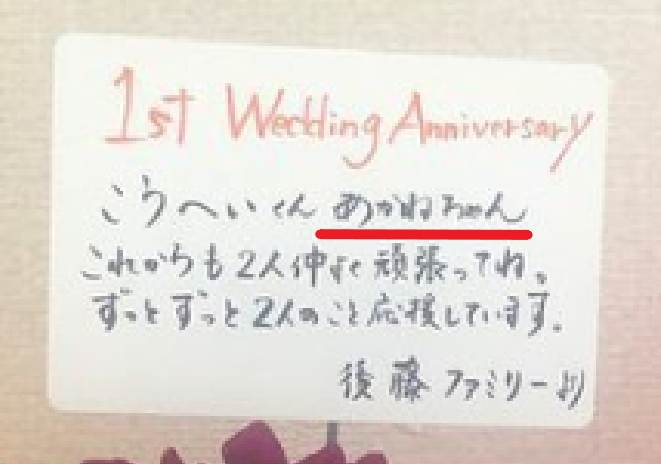 1st Wedding Anniversary
こうへいくん あかねちゃん
これからも2人仲良く頑張ってね。
ずっとずっと2人のこと応援しています。
後藤ファミリーより